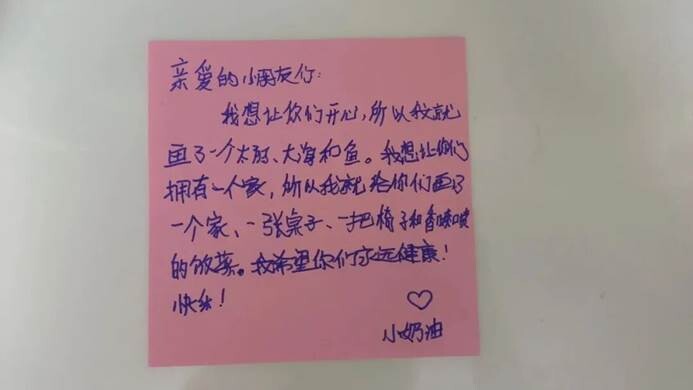 亲爱的小朋友们:
我想让你们开心,所以我就
画了一个太阳、大海和鱼。我想让你们
拥有一个家,所以我就给你们画了
一个家、一张桌子、一把椅子和香喷喷
的饭菜。我希望你们永远健康!
快乐!
小奶油